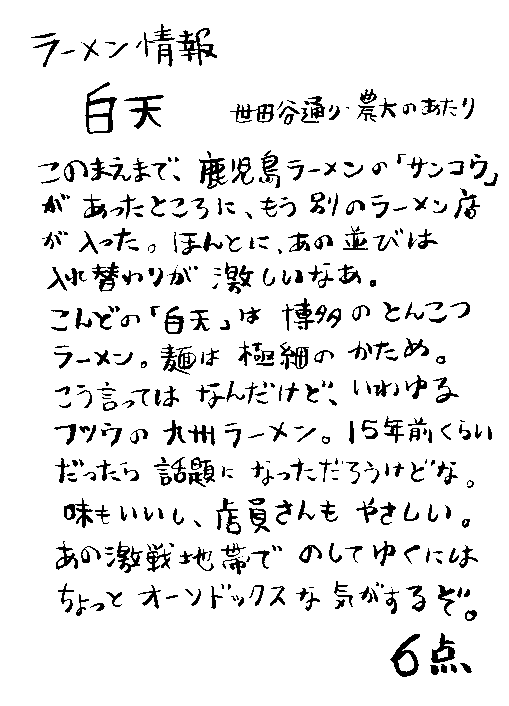 ラーメン情報
白天 世田谷通り・農大のあたり
このまえまで、鹿児島ラーメンの「サンコウ」
があったところに、もう別のラーメン店
が入った。ほんとに、あの並びは
入れ替わりが激しいなあ。
こんどの「白天」は博多のとんこつ
ラーメン。麺は極細のかため。
こう言ってはなんだけど、いわゆる
フツウの九州ラーメン。15年前くらい
だったら話題になっただろうけどな。
味もいいし、店員さんもやさしい。
あの激戦地帯でのしてゆくには
ちょっとオーソドックスな気がするぞ。
6点